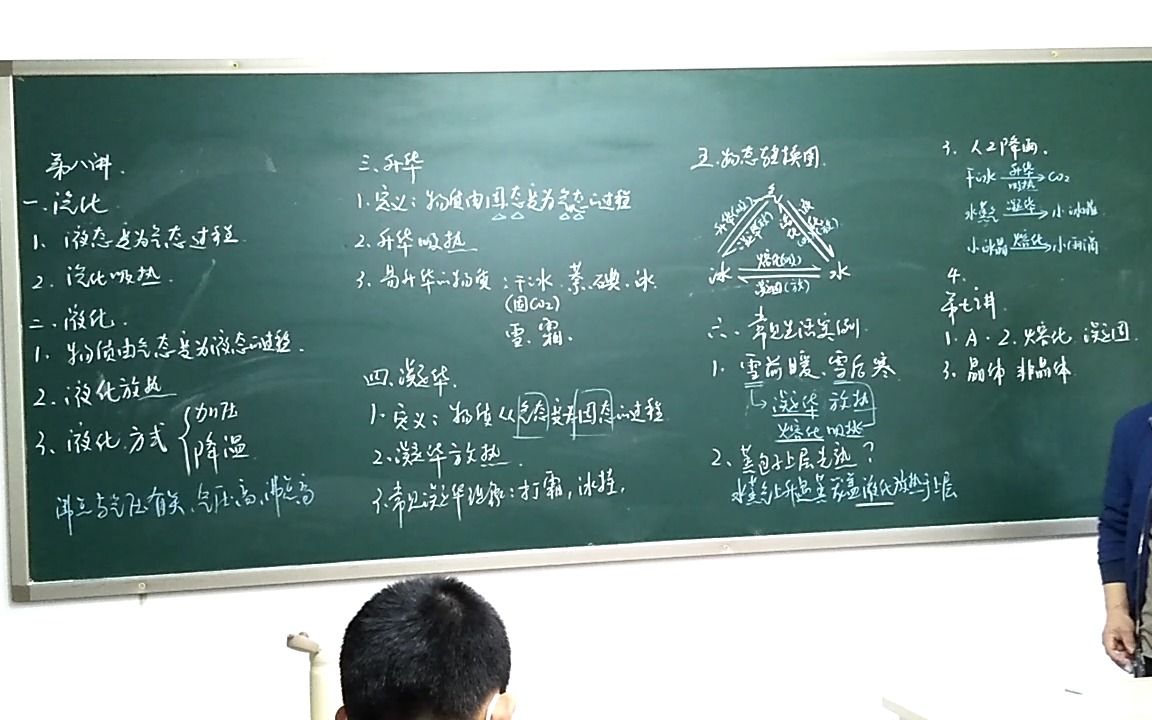 第八讲.
一.汽化
1. 液态变为气态过程.
2. 汽化吸热.
二.液化.
1. 物质由气态变为液态的过程.
2. 液化放热
3. 液化方式 加压
降温
沸点与气压有关,气压高,沸点高
三.升华
1.定义:物质由固态变为气态的过程
2.升华吸热
3.易升华的物质:干冰.萘.碘.冰
(固CO2)
雪.霜.
四.凝华.
1.定义:物质从气态变为固态的过程
2.凝华放热.
3.常见凝华现象:打霜,冰挂,
五.物态转换图.
气
升华(吸)
凝华(放)
冰
熔化(吸)
凝固(放)
水
六.常见生活实例.
1.雪前暖、雪后寒
凝华 放热
熔化吸热
2.蒸包子上层先熟?
水蒸气上升遇蒸笼盖液化放热于上层
3. 人工降雨.
干冰 升华 吸热 CO2
水蒸气 凝华 小冰晶
小冰晶 熔化 小雨滴
4.
第七讲.
1. A. 2. 熔化 凝固.
3. 晶体 非晶体